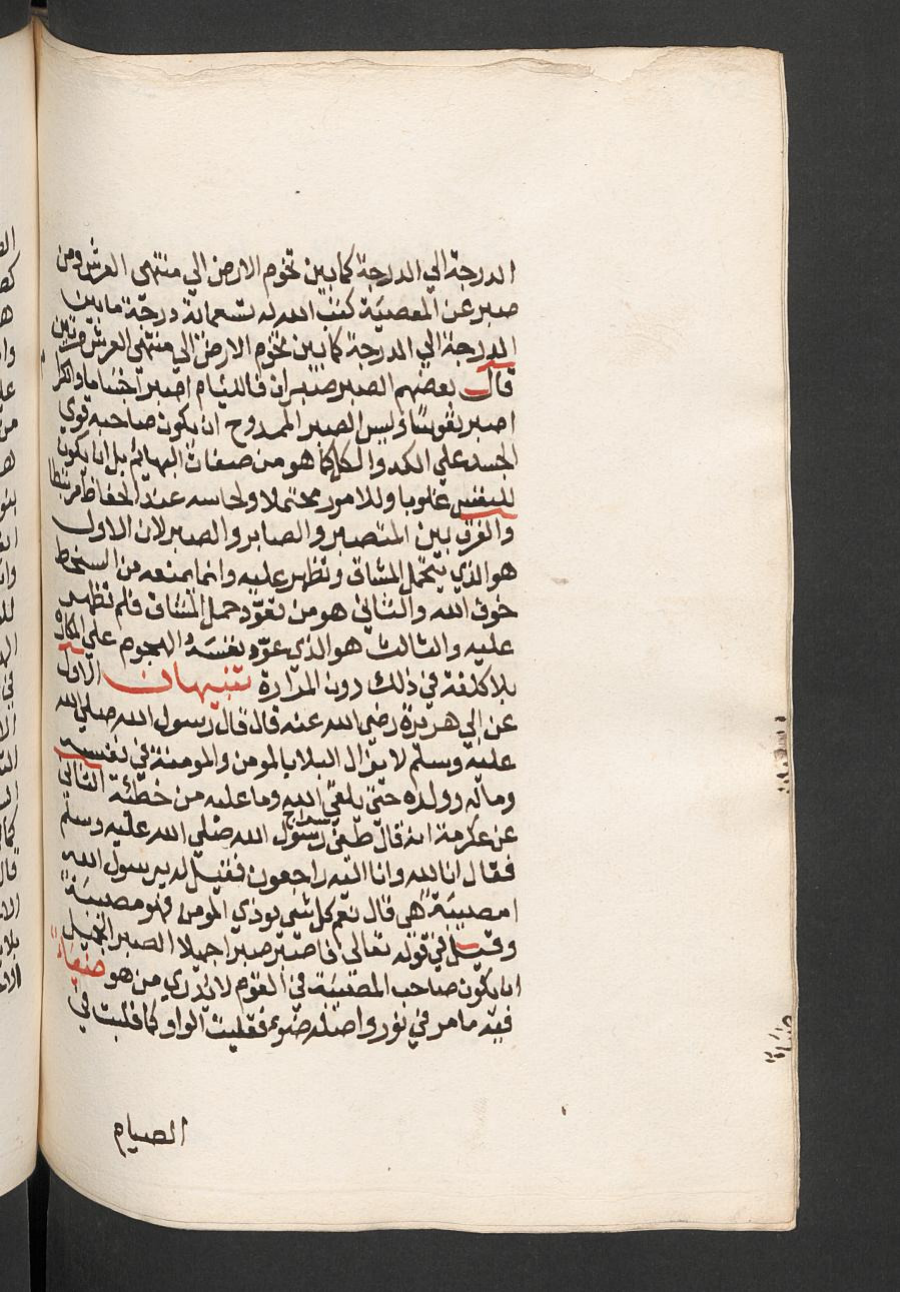 الدرجة الي الدرجة كما بين تخوم الارض الي منتهى العرش ومن
صبر عن المعصية كتب الله له تسعماية درجة ما بين
الدرجة الي الدرجة كما بين تخوم الارض الي منتهي العرش مرتين
قال بعضهم الصبر صبران فاللئام اصبر اجساما والكرام
اصبر نفوسا وليس الصبر الممدوح ان يكون صاحبه قوي
الجسد علي الكد والكل كما هو من صفات البهائم بل ان يكون
للنفس غلوبا وللامور محتملا ولجاسه عند الحفاظ مرتبطا
والفرق بين المتصبر والصابر والصبر لان الاول
هو الذي يتحمل المشاق وتظهر عليه وانما يمنعه من السخط
خوف الله والثاني هو من تعوّد حمل المشاق فلم تظهر
عليه والثالث هو الذي عوّد نفسَهُ الهجوم علي المكاره
بلا كلفة في ذلك دون المرارة تنبيهان الاول
عن ابي هريرة رضي الله عنه قال قال رسول الله صلي الله
عليه وسلم لا يزال البلايا بالمومن والمومنة في نفسه
وماله وولده حتى يلقي الله وما عليه من خطئة الثاني
عن عكرمة انه قال طفئ سراج رسول الله صلي الله عليه وسلم
فقال انا لله وانا اليه راجعون فقيل له يرسول الله
امصيبة هي قال نعم كل شي يوذي المومن فهو مصيبة
وقيل في قوله تعالى فاصبر صبرا جميلا الصبر الجميل
ان يكون صاحب المصيبة في القوم لا يُدري من هو ضياء
فيه ما مر في نور واصله ضوء فقلبت الواو كما قلبت في
الصيام
ضياء